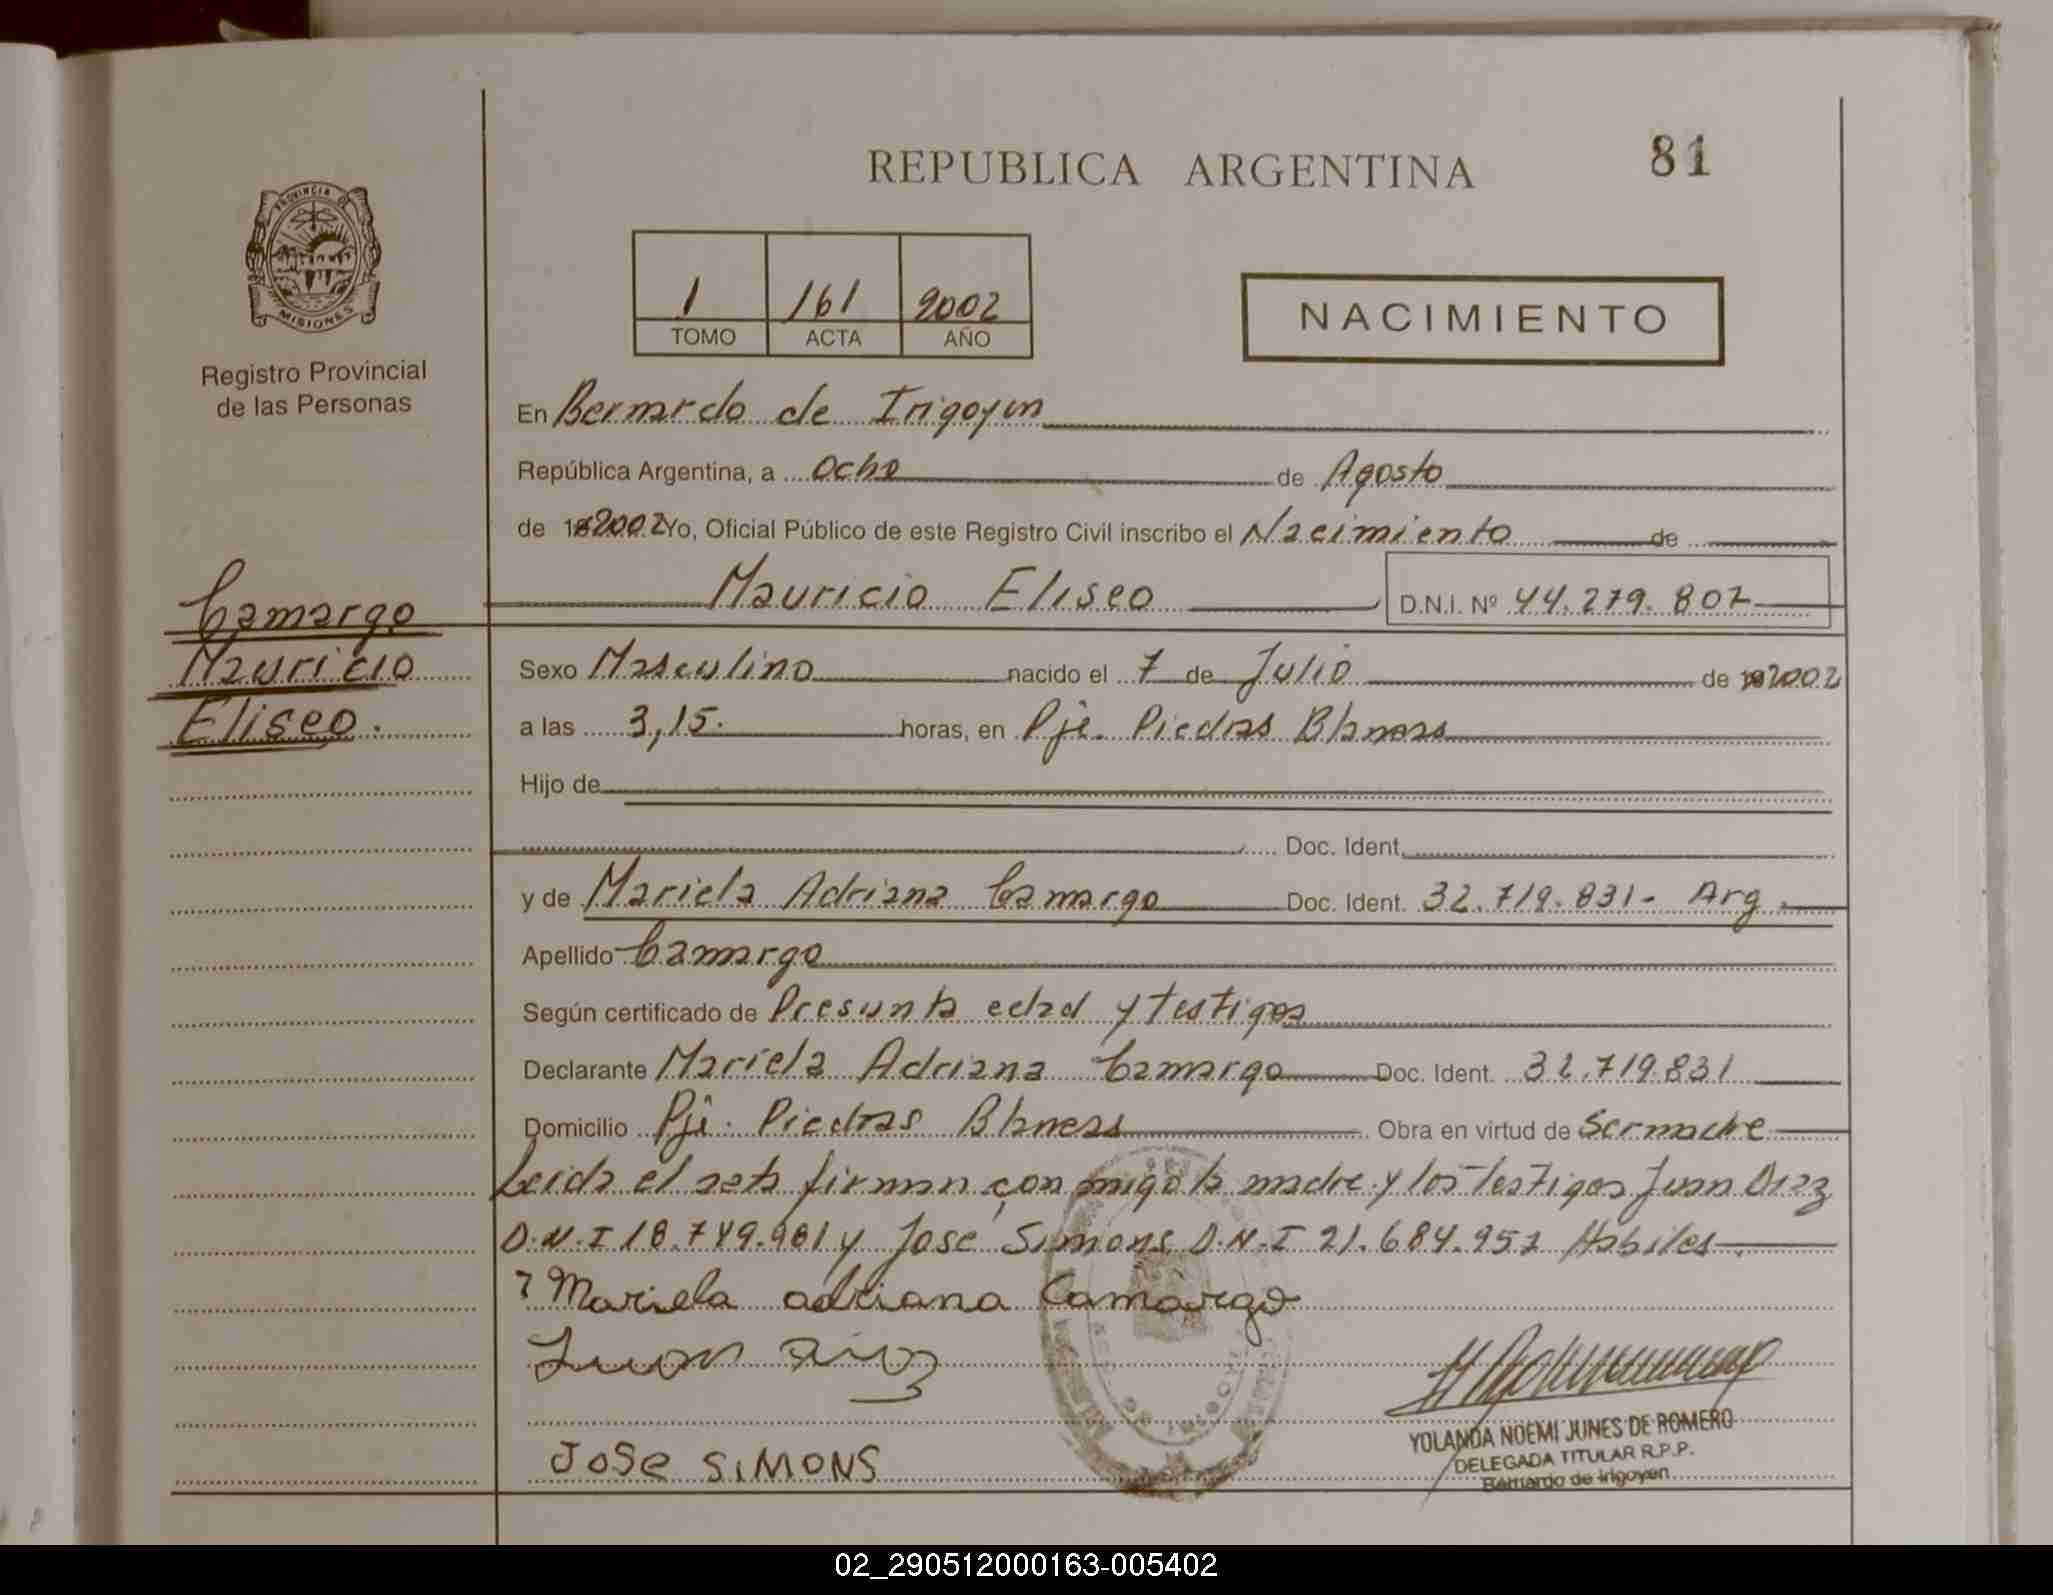 REPUBLICA ARGENTINA
81
PROVINCIA DE
MISIONES
Registro Provincial
de las Personas
1 161 2002
TOMO ACTA AÑO
NACIMIENTO
En Bernardo de Irigoyen
República Argentina, a ocho de Agosto
de 2002 Yo, Oficial Público de este Registro Civil inscribo el Nacimiento de
Mauricio Eliseo D.N.I. Nº 44.279.807
Camargo
Mauricio
Eliseo.
Sexo Masculino nacido el 7 de Julio de 2002
a las 3,15. horas, en Pje. Piedras Blancas
Hijo de
Doc. Ident.
y de Mariela Adriana Camargo Doc. Ident. 32.719.831- Arg.
Apellido Camargo
Según certificado de Presunta edad y testigos
Declarante Mariela Adriana Camargo Doc. Ident. 32.719.831
Domicilio Pje. Piedras Blancas Obra en virtud de Ser madre
Leida el acta firman con migo la madre y los testigos Juan Diaz
D.N.I 18.749.981 y José Simons D.N.I 21.684.957 Habiles
Mariela adriana Camargo
Juan Diaz
JOSe SiMONS
YOLANDA NOEMI JUNES DE ROMERO
DELEGADA TITULAR R.P.P.
Bernardo de Irigoyen
02_290512000163-005402